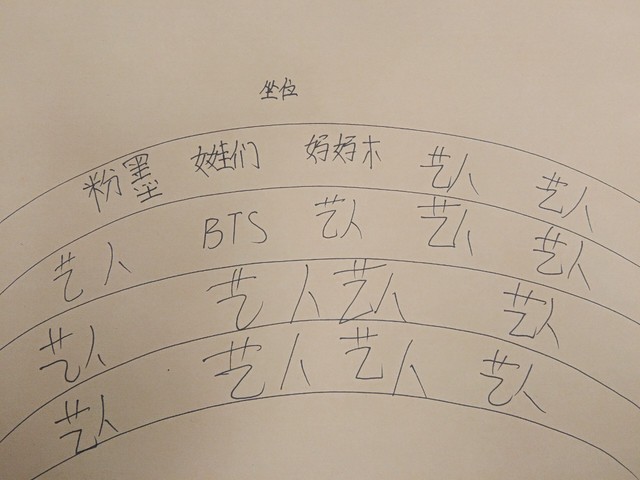 坐位
粉墨 娃们 妈妈木 艺人 艺人
艺人 BTS 艺人 艺人 艺人
艺人 艺人 艺人 艺人
艺人 艺人 艺人 艺人